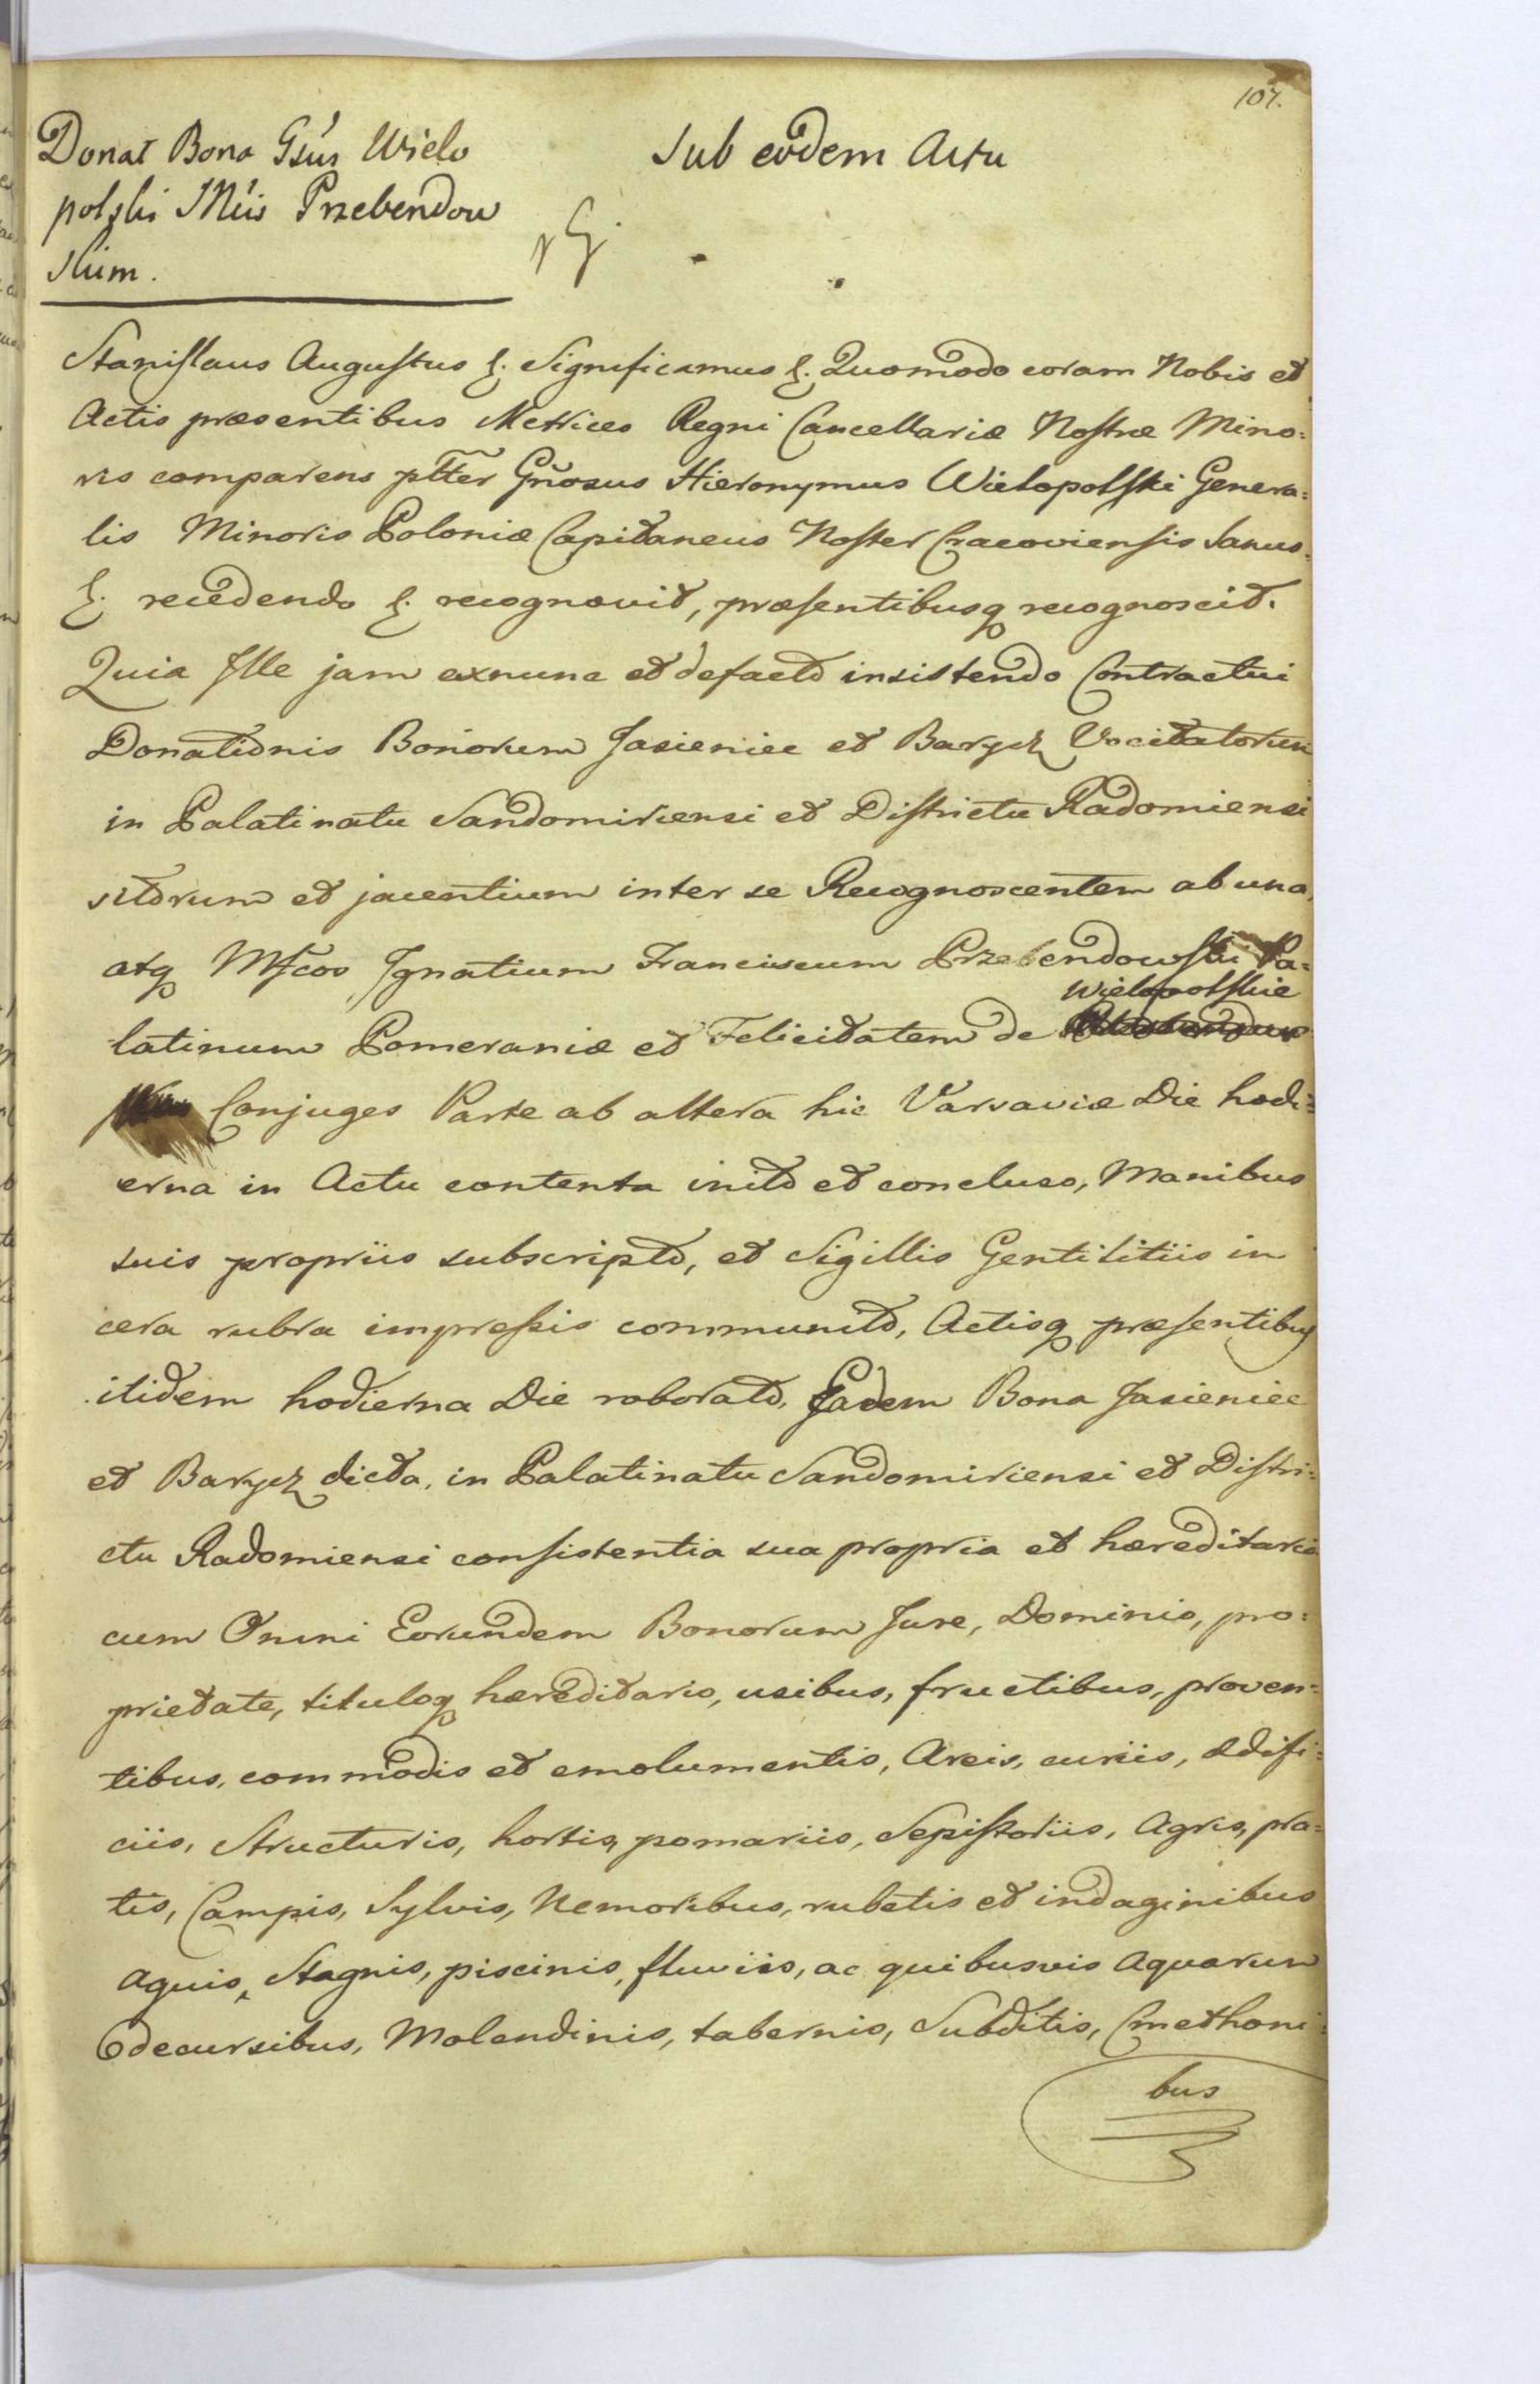 107.
Donat Bona Gsús Wielo
polski IMíis Przebendow
skim.
Sub eodem Actu
Stanislaus Augustus &. Significamus &. Quomodo coram Nobis et
Actis præsentibus Metrices Regni Cancellariæ Nostræ Mino=
ris comparens pltter Gñosus Hieronymus Wielopolski Genera=
lis Minoris Poloniæ Capitaneus Noster Cracoviensis Sanus.
&. recedendo &. recognovit, præsentibusq recognoscit.
Quia Ille jam exnunc et defacto insistendo Contractui
Donationis Bonorum Jasieniec et Barycz Vocitatorum
in Palatinatu Sandomiriensi et Districtu Radomiensi
sitorum et jacentium inter se Recognoscentem ab una,
atq Mfcos Ignatium Franciscum Przebendowski Pa=
Wielopolskie
latinum Pomeraniæ et Felicitatem de
Conjuges Parte ab altera hic Varsaviæ Die hodi=
erna in Actu contenta inito et concluso, Manibus
suis propriis subscripto, et Sigillis Gentilitiis in
cera rubra impressis communito, Actisq præsentibus
itidem hodierna Die roborato, Eadem Bona Jasieniec
et Barycz dicta, in Palatinatu Sandomiriensi et Distri=
ctu Radomiensi consistentia sua propria et hæreditaria
cum Omni Eorundem Bonorum Jure, Dominio, pro=
prietate, tituloq hæreditario, usibus, fructibus, proven=
tibus, commodis et emolumentis, Areis, curiis, ædifi=
ciis, Structuris, hortis, pomariis, Sepistoriis, Agris, pra=
tis, Campis, Sylvis, Nemoribus, rubetis et indaginibus
Aquis, Stagnis, piscinis, fluviis, ac quibusvis Aquarum
decursibus, Molendinis, tabernis, Subditis, Cmethoni=
bus